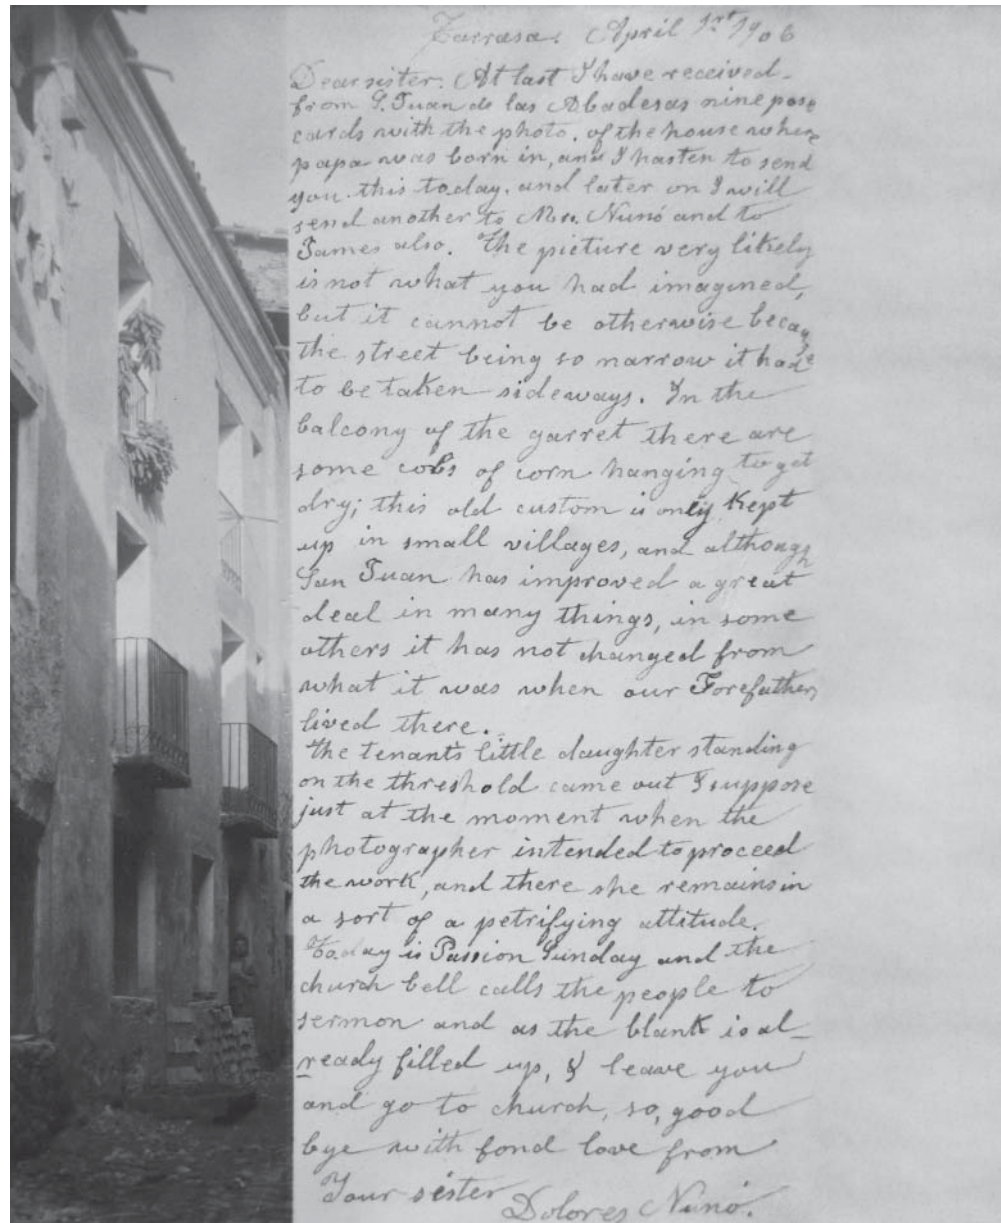 Tarrasa. April 1rst 1906
Dear sister: At last I have received
from S. Juan de las Abadesas nine post
cards with the photo. of the house where
papa was born in, and I hasten to send
you this today, and later on I will
send another to Mrs. Nunó and to
James also. The picture very likely
is not what you had imagined,
but it cannot be otherwise because
the street being so narrow it had
to be taken sideways. In the
balcony of the garret there are
some cobs of corn hanging to get
dry; this old custom is only kept
up in small villages, and although
San Juan has improved a great
deal in many things, in some
others it has not changed from
what it was when our Forefathers
lived there.
The tenants little daughter standing
on the threshold came out I suppose
just at the moment when the
photographer intended to proceed
the work, and there she remains in
a sort of a petrifying attitude.
Today is Passion Sunday and the
church bell calls the people to
sermon and as the blank is al-
ready filled up, I leave you
and go to church, so, good
bye with fond love from
Your sister
Dolores Nunó.